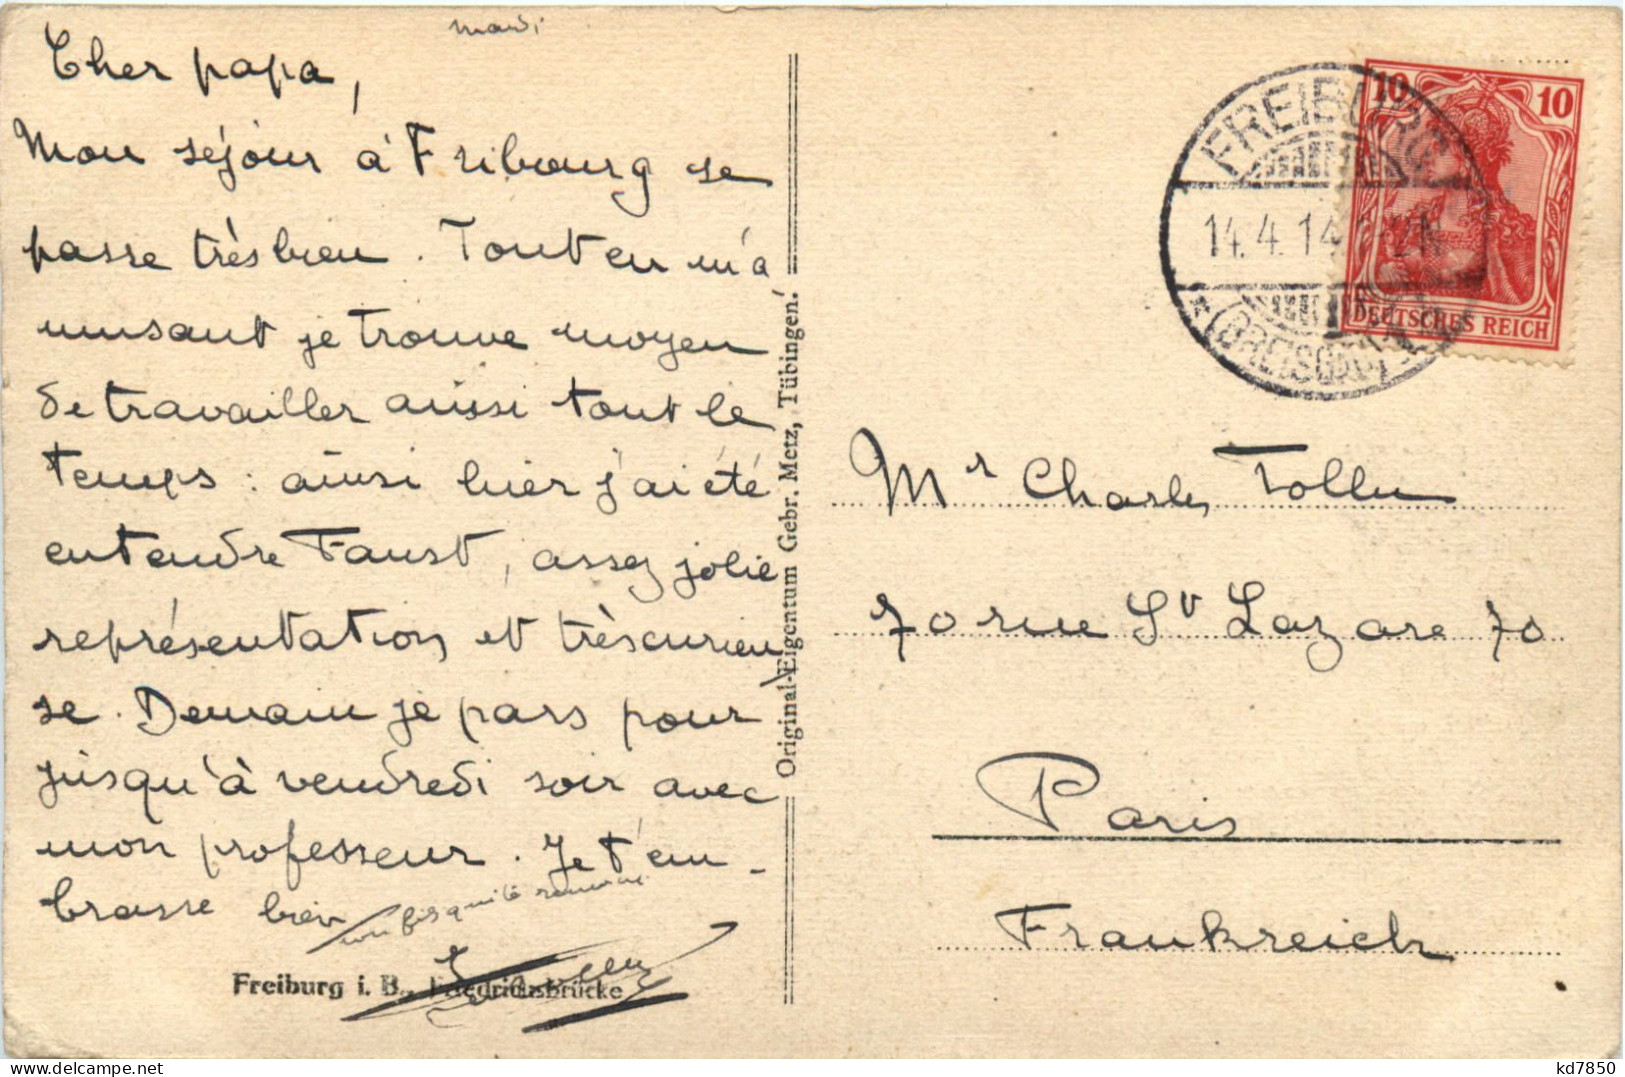 mardi
Cher papa,
Mon séjour à Fribourg se
passe très bien. Tout en m'a
musant je trouve moyen
de travailler aussi tout le
temps : ainsi hier j'ai été
entendre Faust, assez jolie
représentation et très curieu
se. Demain je pars pour
jusqu'à vendredi soir avec
mon professeur. Je t'em-
brasse bien
Freiburg i. B., Friedrichsbrücke
Original-Eigentum Gebr. Metz, Tübingen.
FREIBURG
14.4.14
BREISGAU
10 10
DEUTSCHES REICH
Mr Charles
70 rue St Lazare 70
Paris
Frankreich
kd7850